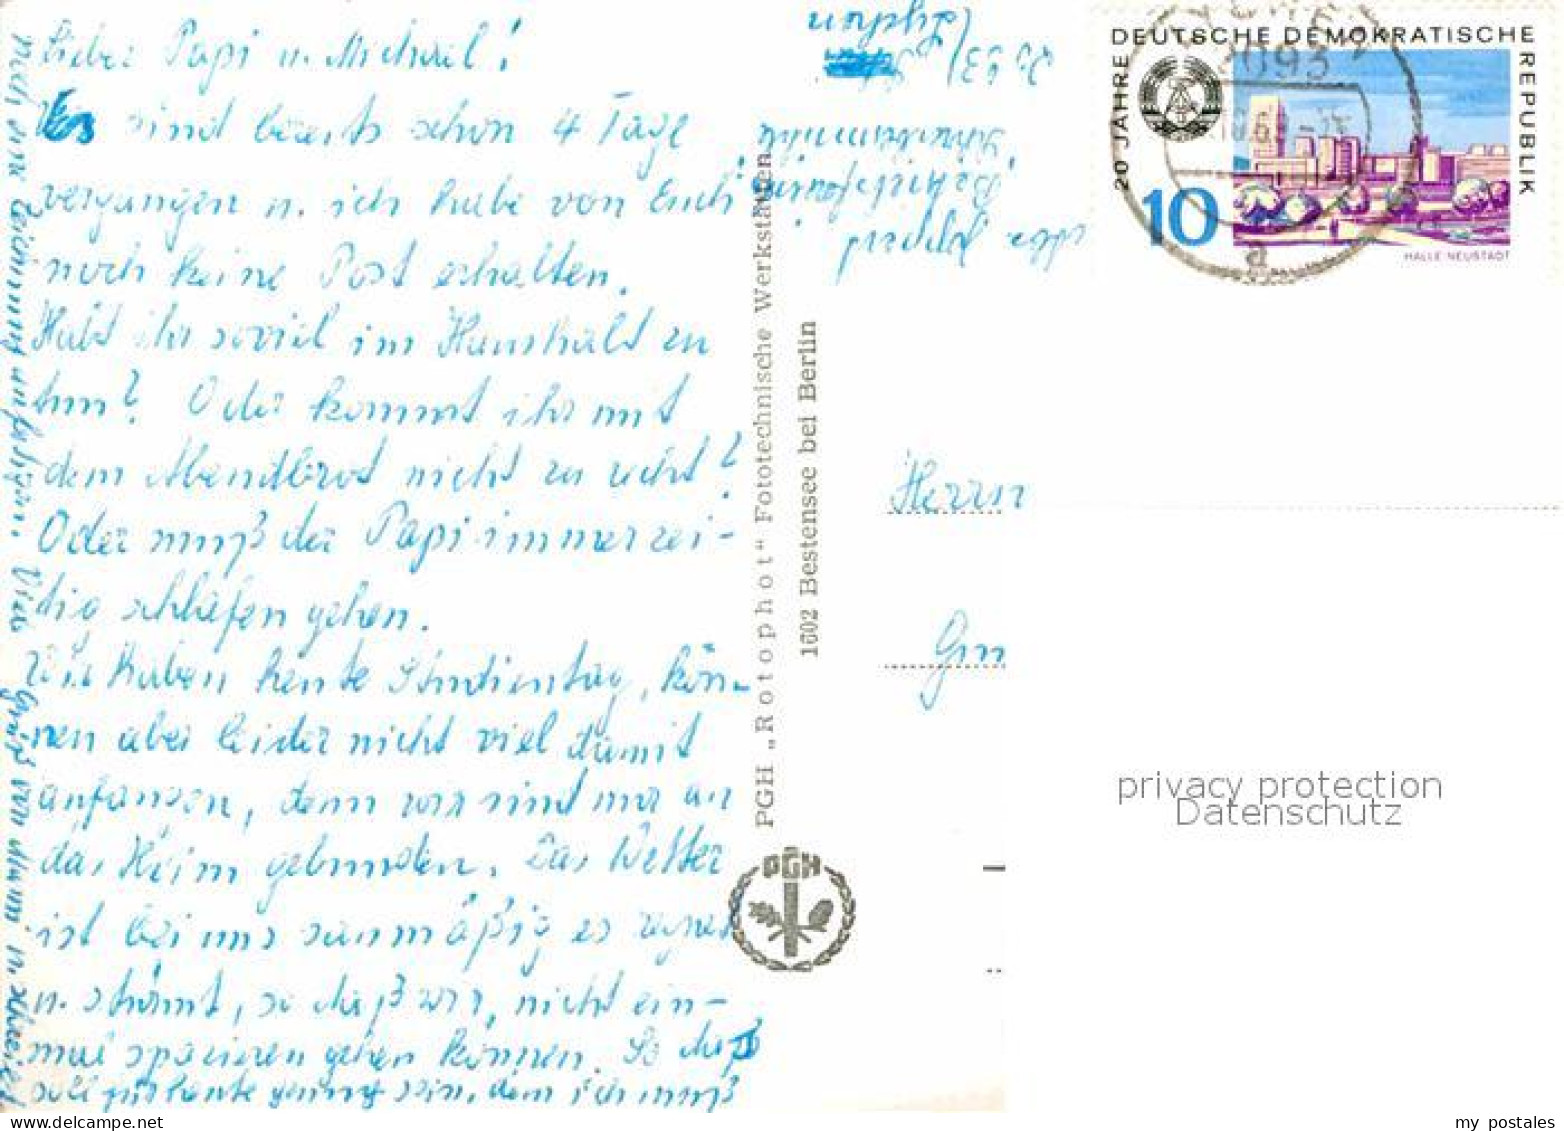 Lieber Papi u. Michael!
Es sind bereits schon 4 Tage
vergangen u. ich habe von Euch
noch keine Post erhalten.
Habt ihr soviel im Haushalt zu
tun? Oder kommt ihr mit
dem Abendbrot nicht zu recht?
Oder muß der Papi immer zei-
tig schlafen gehen.
Wir haben heute Studientag, kön-
nen aber leider nicht viel damit
anfangen, denn wir sind nur an
das Heim gebunden. Das Wetter
ist bei uns saumäßig es regnet
u. stürmt, so daß wir, nicht ein-
mal spazieren gehen können. So das
soll für heute genug sein, denn ich muß
noch eine Zeichnung anfertigen. Viele Grüße von Mami u.
PGH „Rotophot“ Fototechnische Werkstätten
1602 Bestensee bei Berlin
PGH
2093 Lychen
DEUTSCHE DEMOKRATISCHE
REPUBLIK
20 JAHRE
10
HALLE NEUSTADT
2093
a
Herrn
privacy protection
Datenschutz
my postales